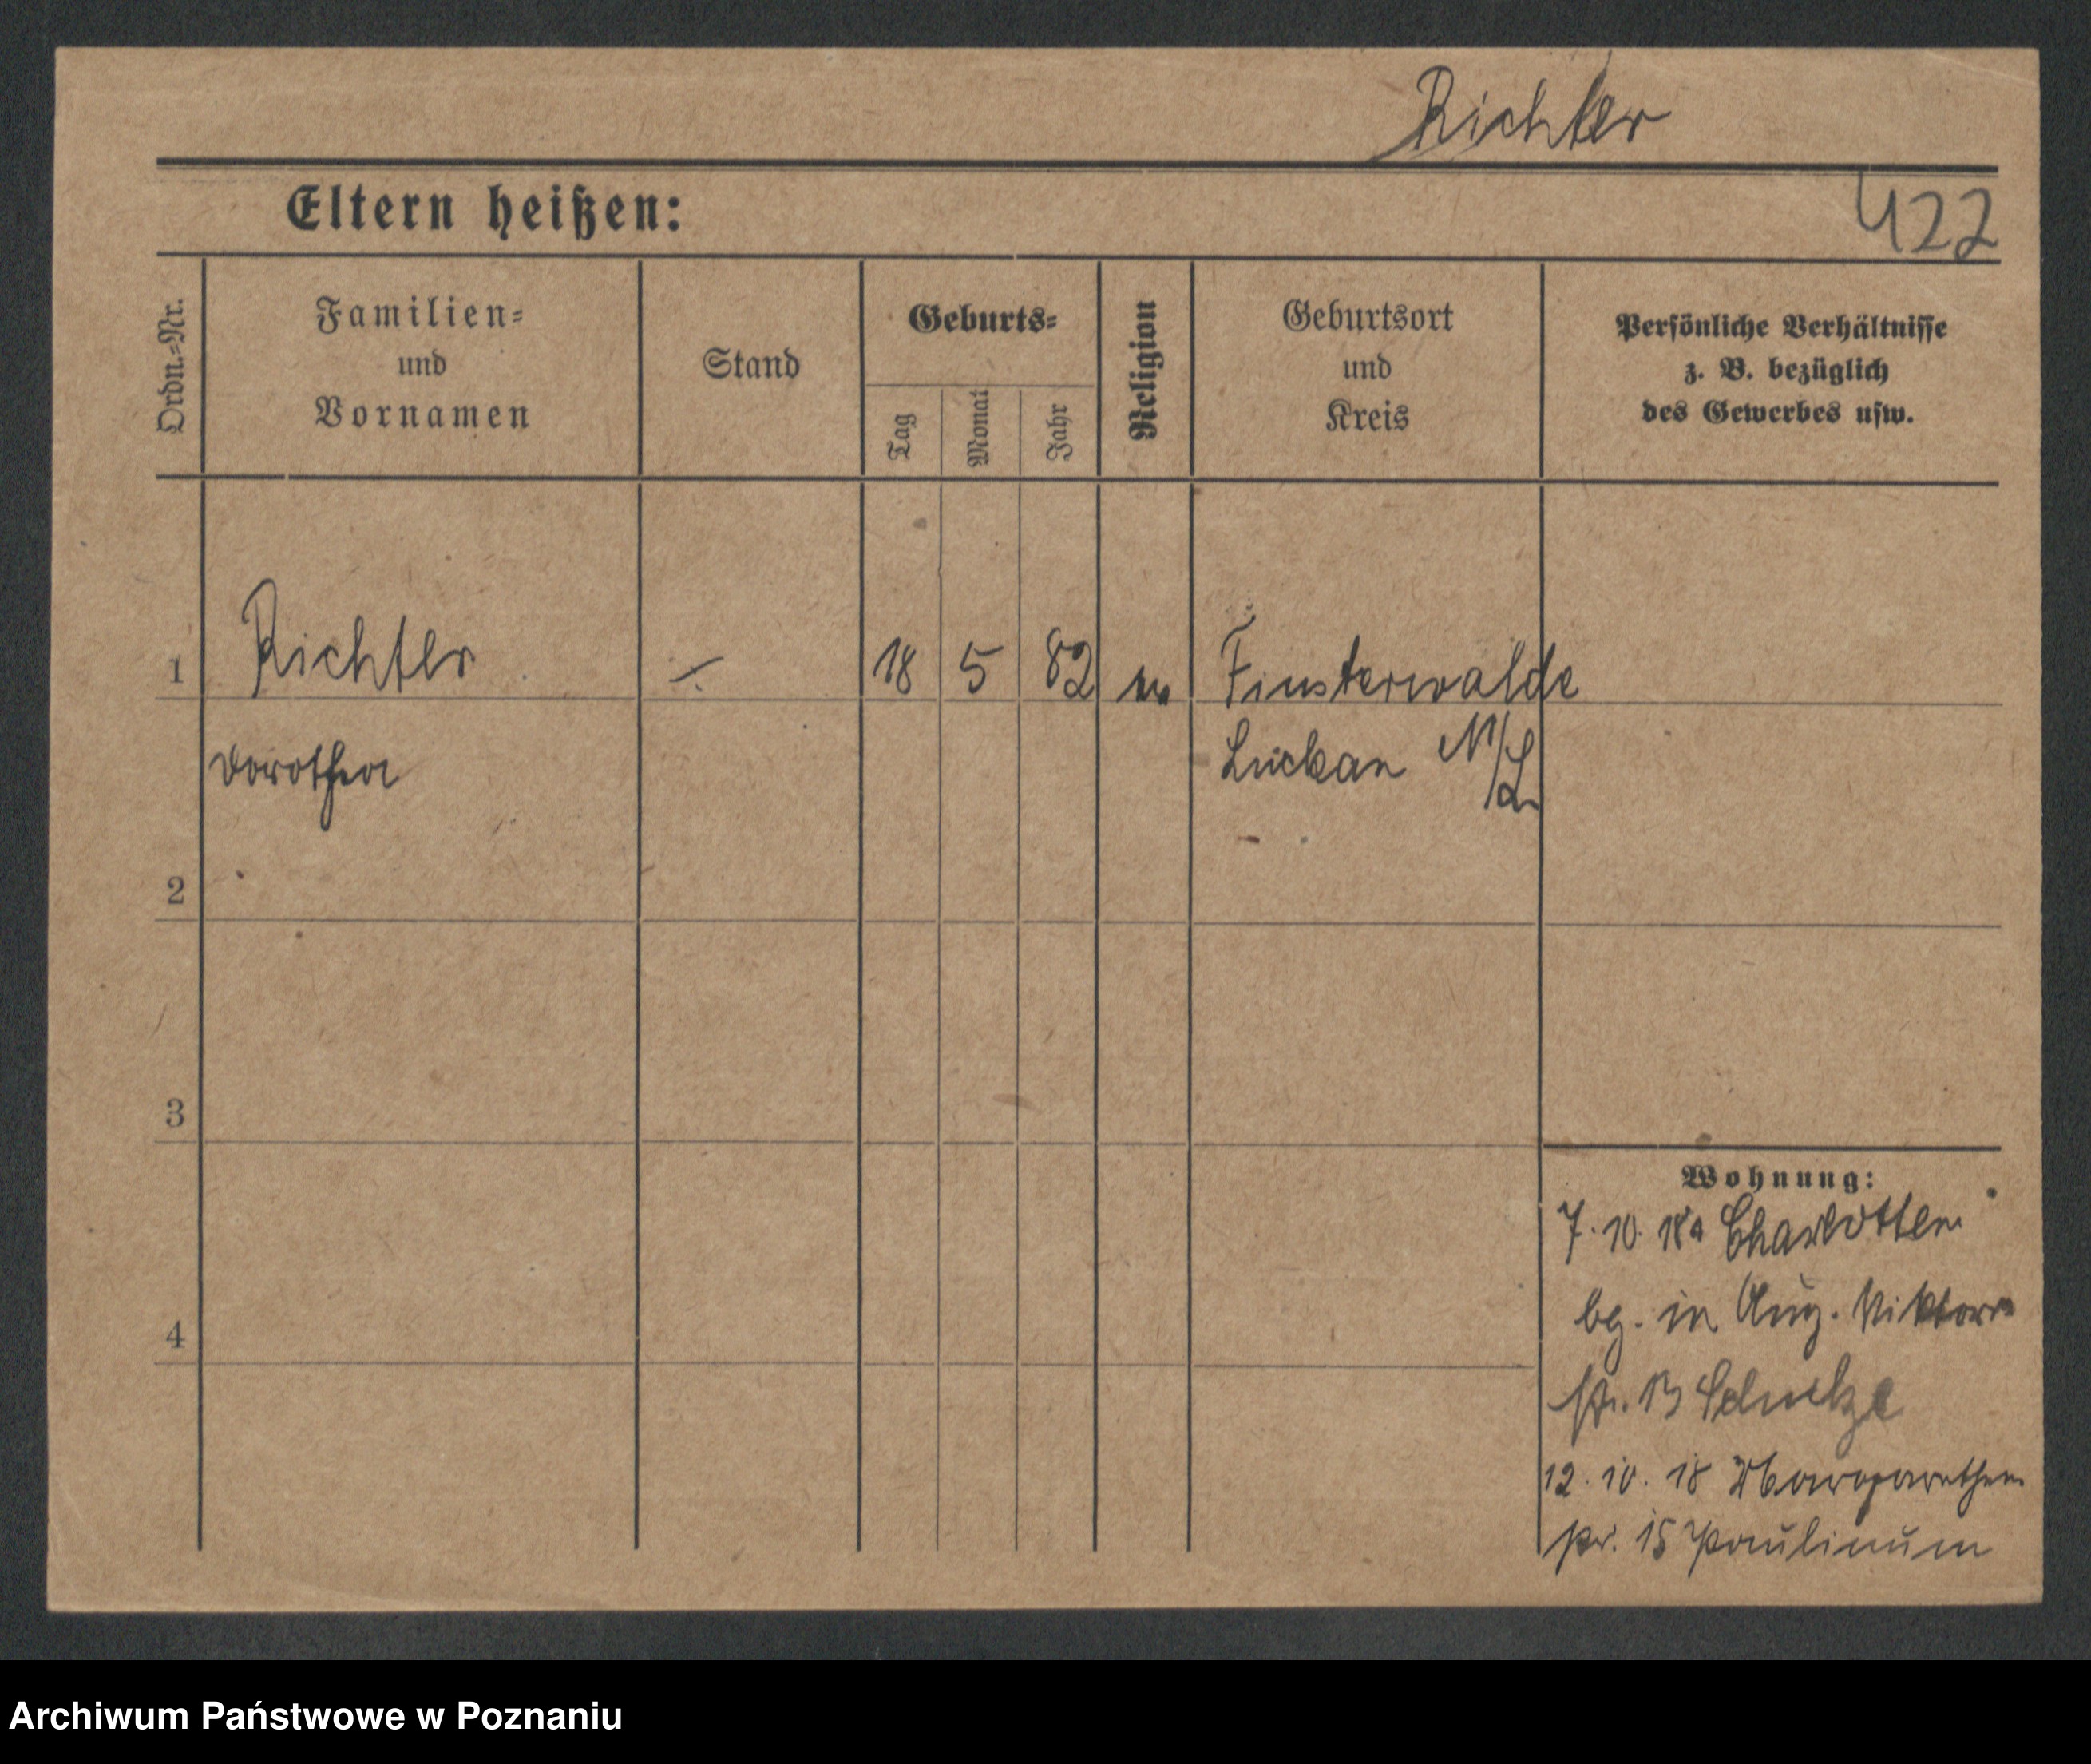 Richter
Eltern heißen:
422
Ordn.=Nr.
Familien=
und
Vornamen
Stand
Geburts=
Tag
Monat
Jahr
Religion
Geburtsort
und
Kreis
Persönliche Verhältnisse
z. B. bezüglich
des Gewerbes usw.
1
Richter
18 5 82
Finsterwalde
Dorothea
Luckau N/L
2
3
4
Wohnung:
7. 10. 18 a Charlotten
bg. in Aug. Viktoria
str. 13 Schulze
12. 10. 18 Margarethen
str. 15 Paulinum
Archiwum Państwowe w Poznaniu